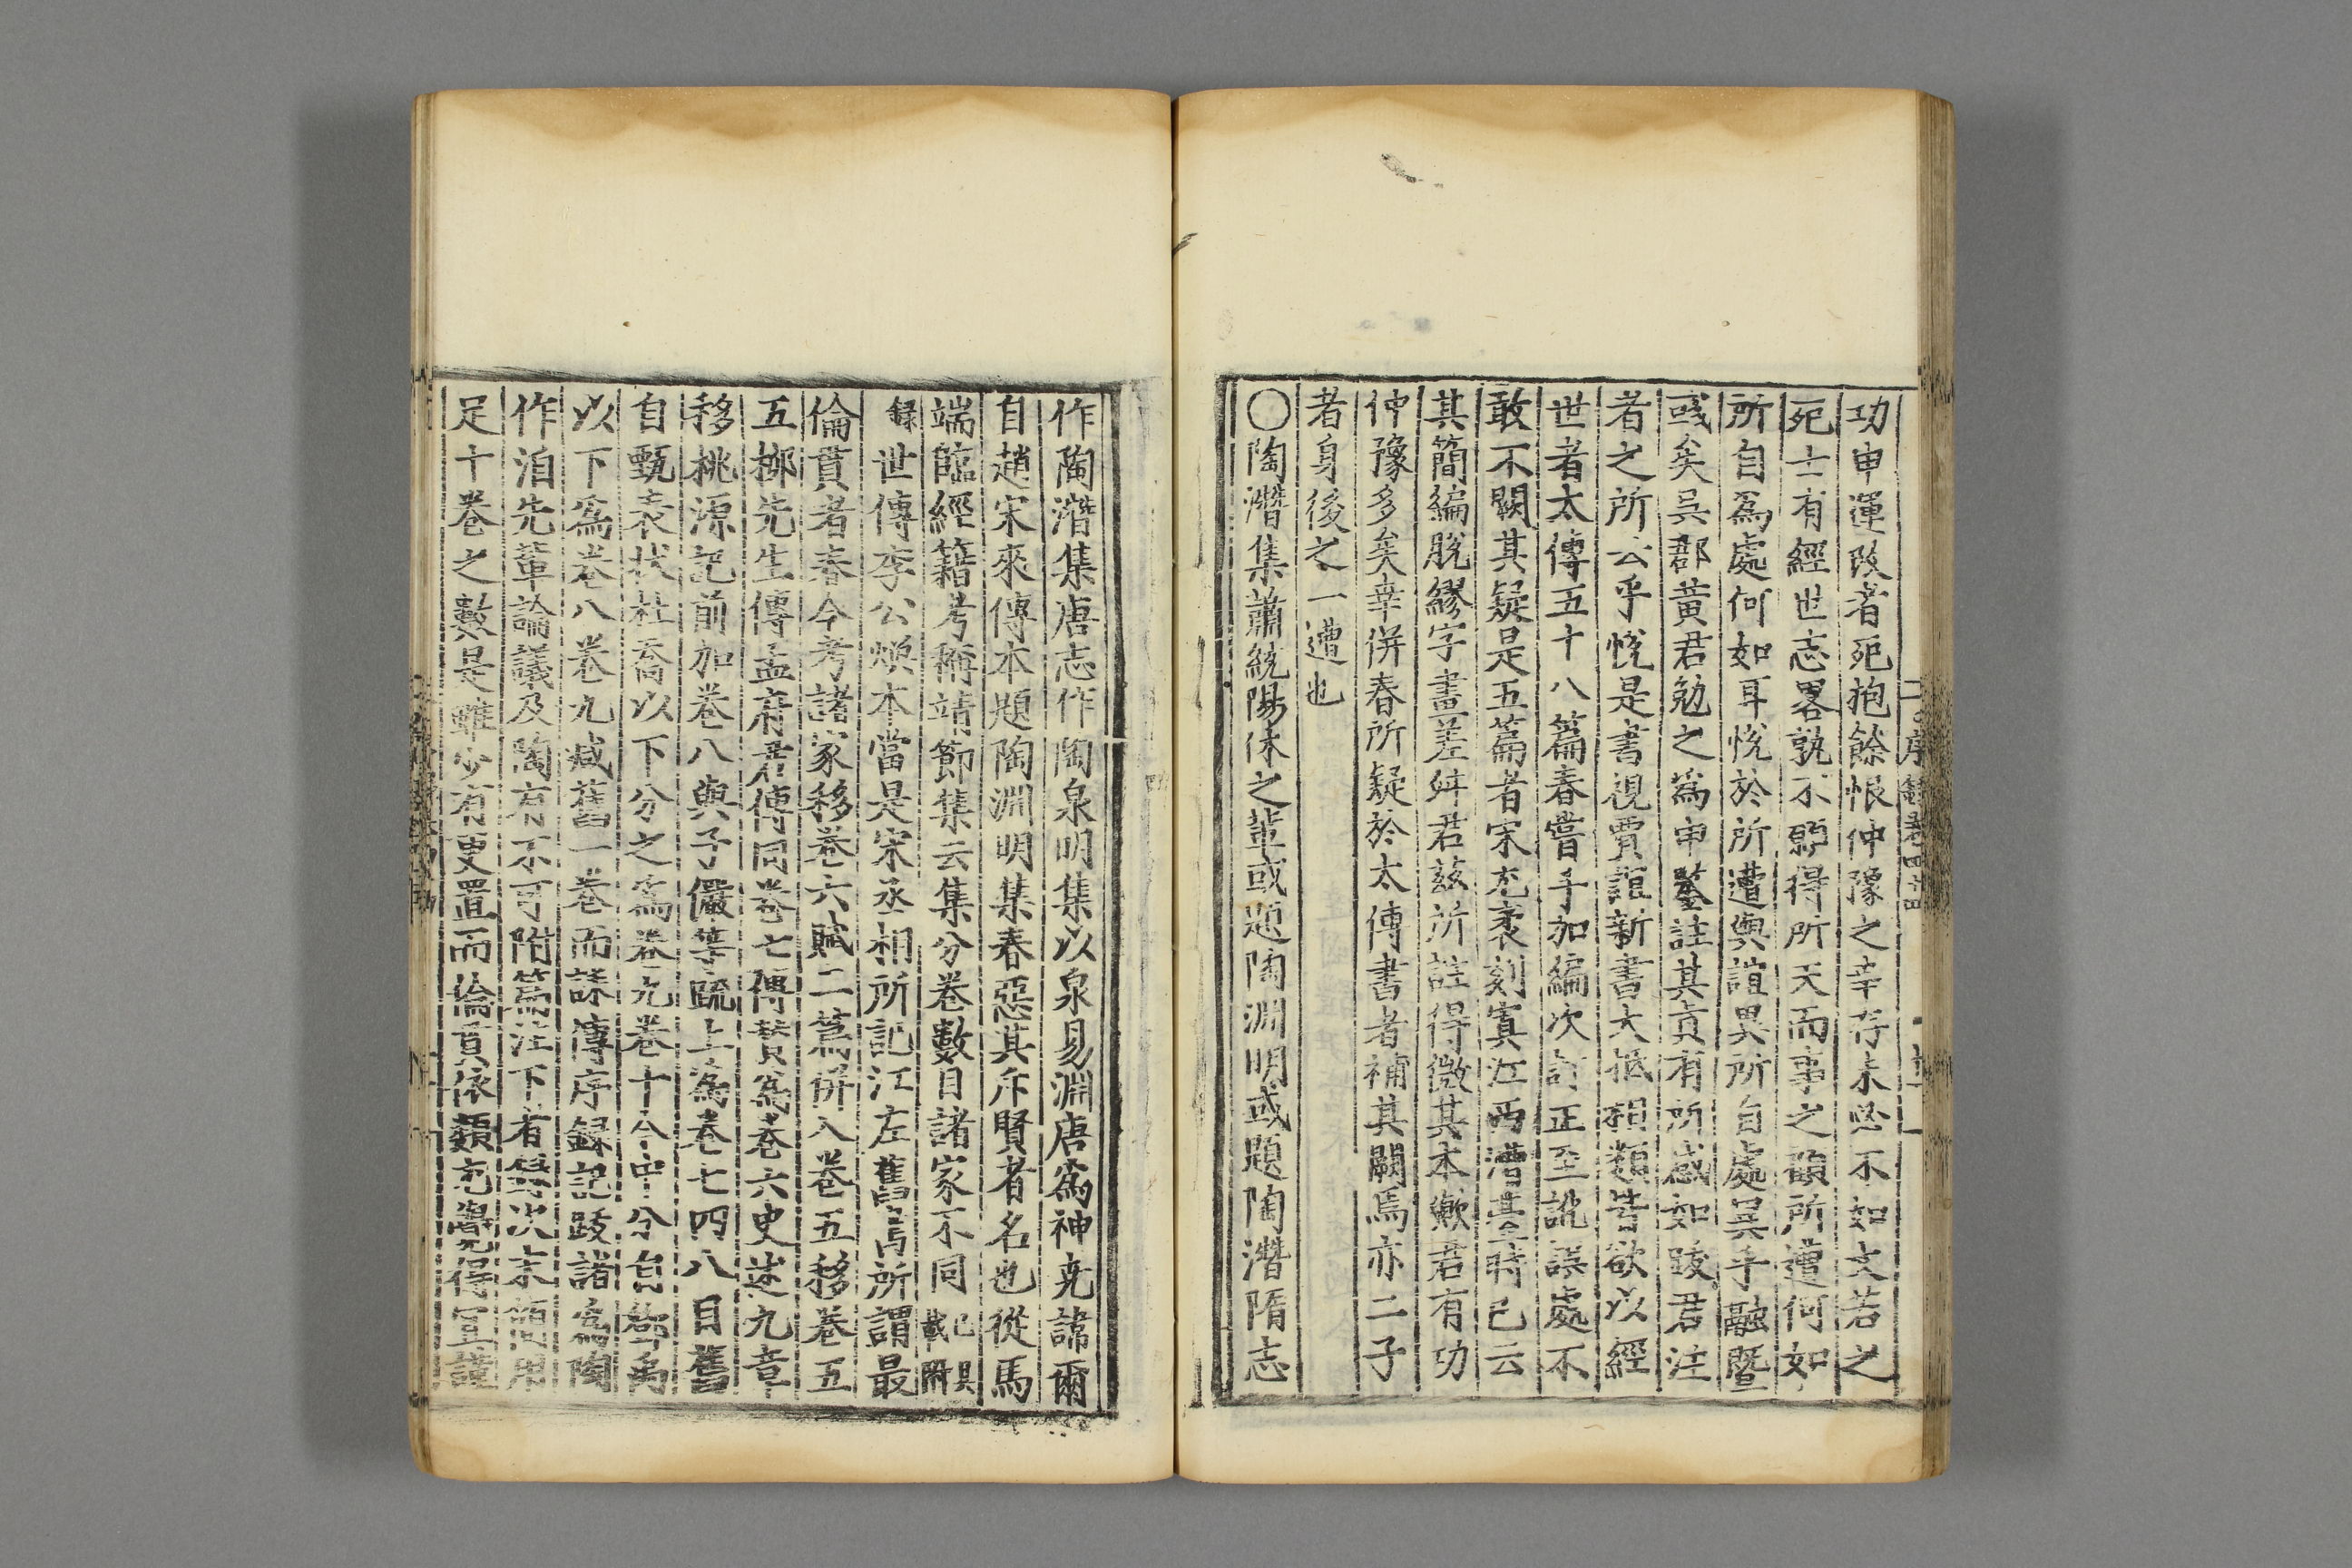 功申運改著死抱餘恨仲豫之幸存未必不如文若之
死士有經世志畧孰不願得所天而事之顧所遭何如
所自爲處何如耳恱於所遭與誼異所自處異乎融曁
彧矣吳郡黄君勉之爲申鑒註其眞有所感如踐君注
者之所云乎恱是書視賈誼新書大抵相類皆欲以經
世者太傅五十八篇春嘗手加編次訂正至訛誤處不
敢不闕其疑是五篇者宋尤袤刻寘江西漕臺時已云
其簡編脫繆字畫差舛君兹所註得微其本歟君有功
仲豫多矣幸併春所疑於太傅書者補其闕焉亦二子
者身後之一遭也
〇陶潛集蕭統陽休之輩或題陶淵明或題陶潛隋志
作陶潛集唐志作陶泉明集以泉易淵唐爲神堯諱爾
自趙宋來傳本題陶淵明集春惡其斥賢者名也從馬
端臨經籍考稱靖節集云集分卷數目諸家不同已具載附
錄世傳李公煥本當是宋丞相所記江左舊書所謂最
倫貫者春今考諸家移卷六賦二篇併入卷五移卷五
五柳先生傳孟府君傳同卷七傳贊爲卷六史述九章
移桃源記前加卷八與子儼等疏上爲卷七四八目舊
自甄表狀杜喬以下分之爲卷九卷十今中分自鄧禹
以下爲卷八卷九减舊一卷而誄傳序録記跋諸爲陶
作洎先輩論議及陶有不可附篇注下者第次末簡用
足十卷之數是雖少有更置而倫貫依類尤覺得宜謹
二序録卷四十四